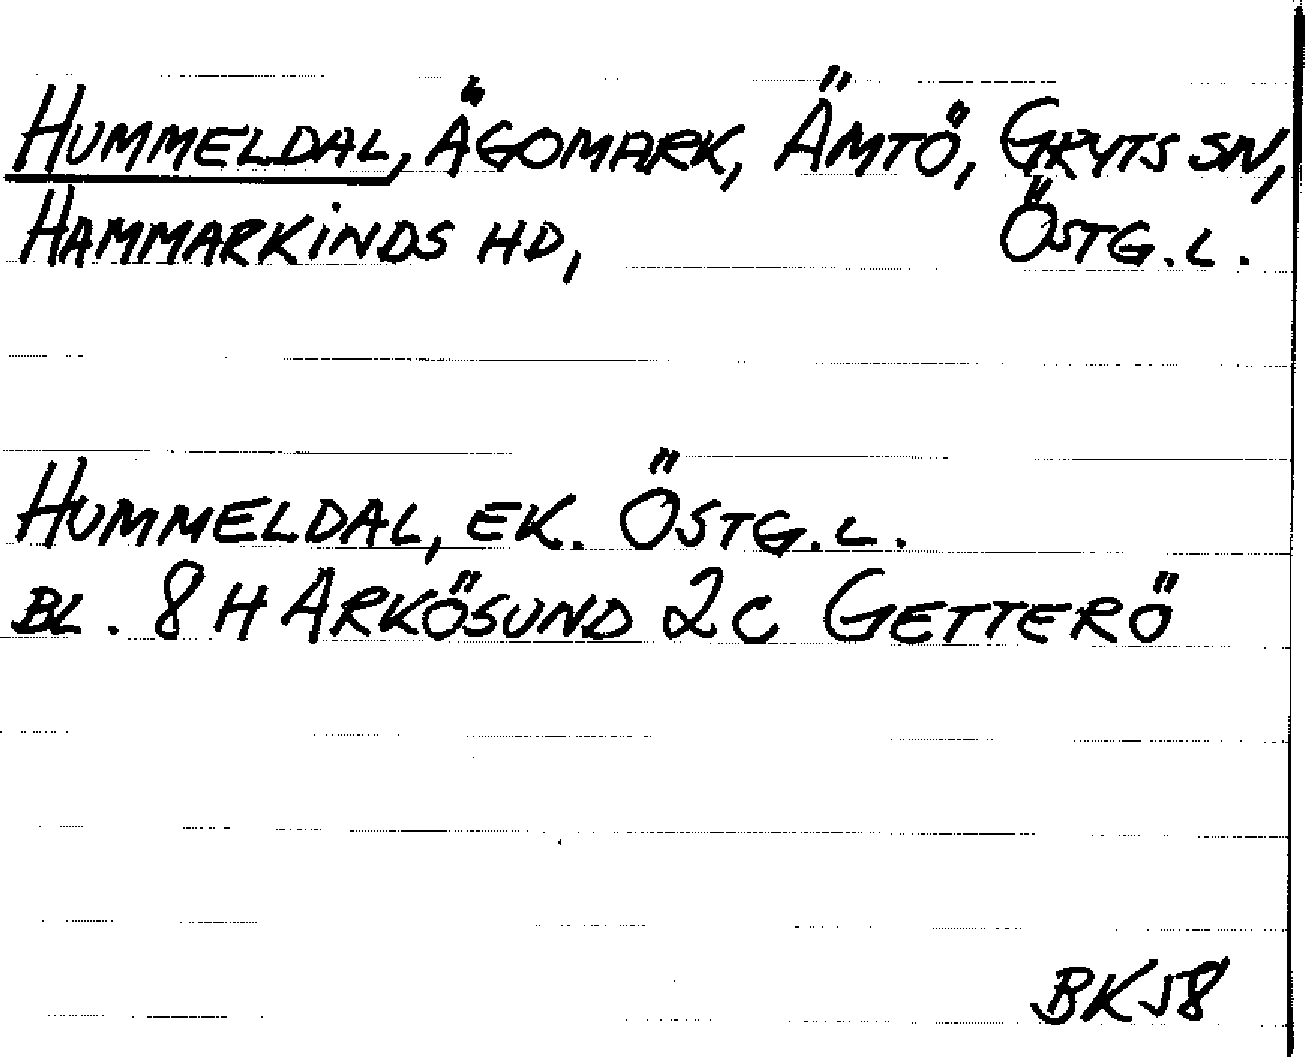 HUMMELDAL, ÄGOMARK, ÄMTÖ, GRYTS SN,
HAMMARKINDS HD, ÖSTG.L.
HUMMELDAL, EK. ÖSTG.L.
BL. 8 H ARKÖSUND 2C GETTERÖ
BK58